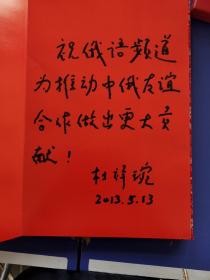 祝俄语频道
为推动中俄友谊
合作做出更大贡
献！
杜祥琬
2013.5.13